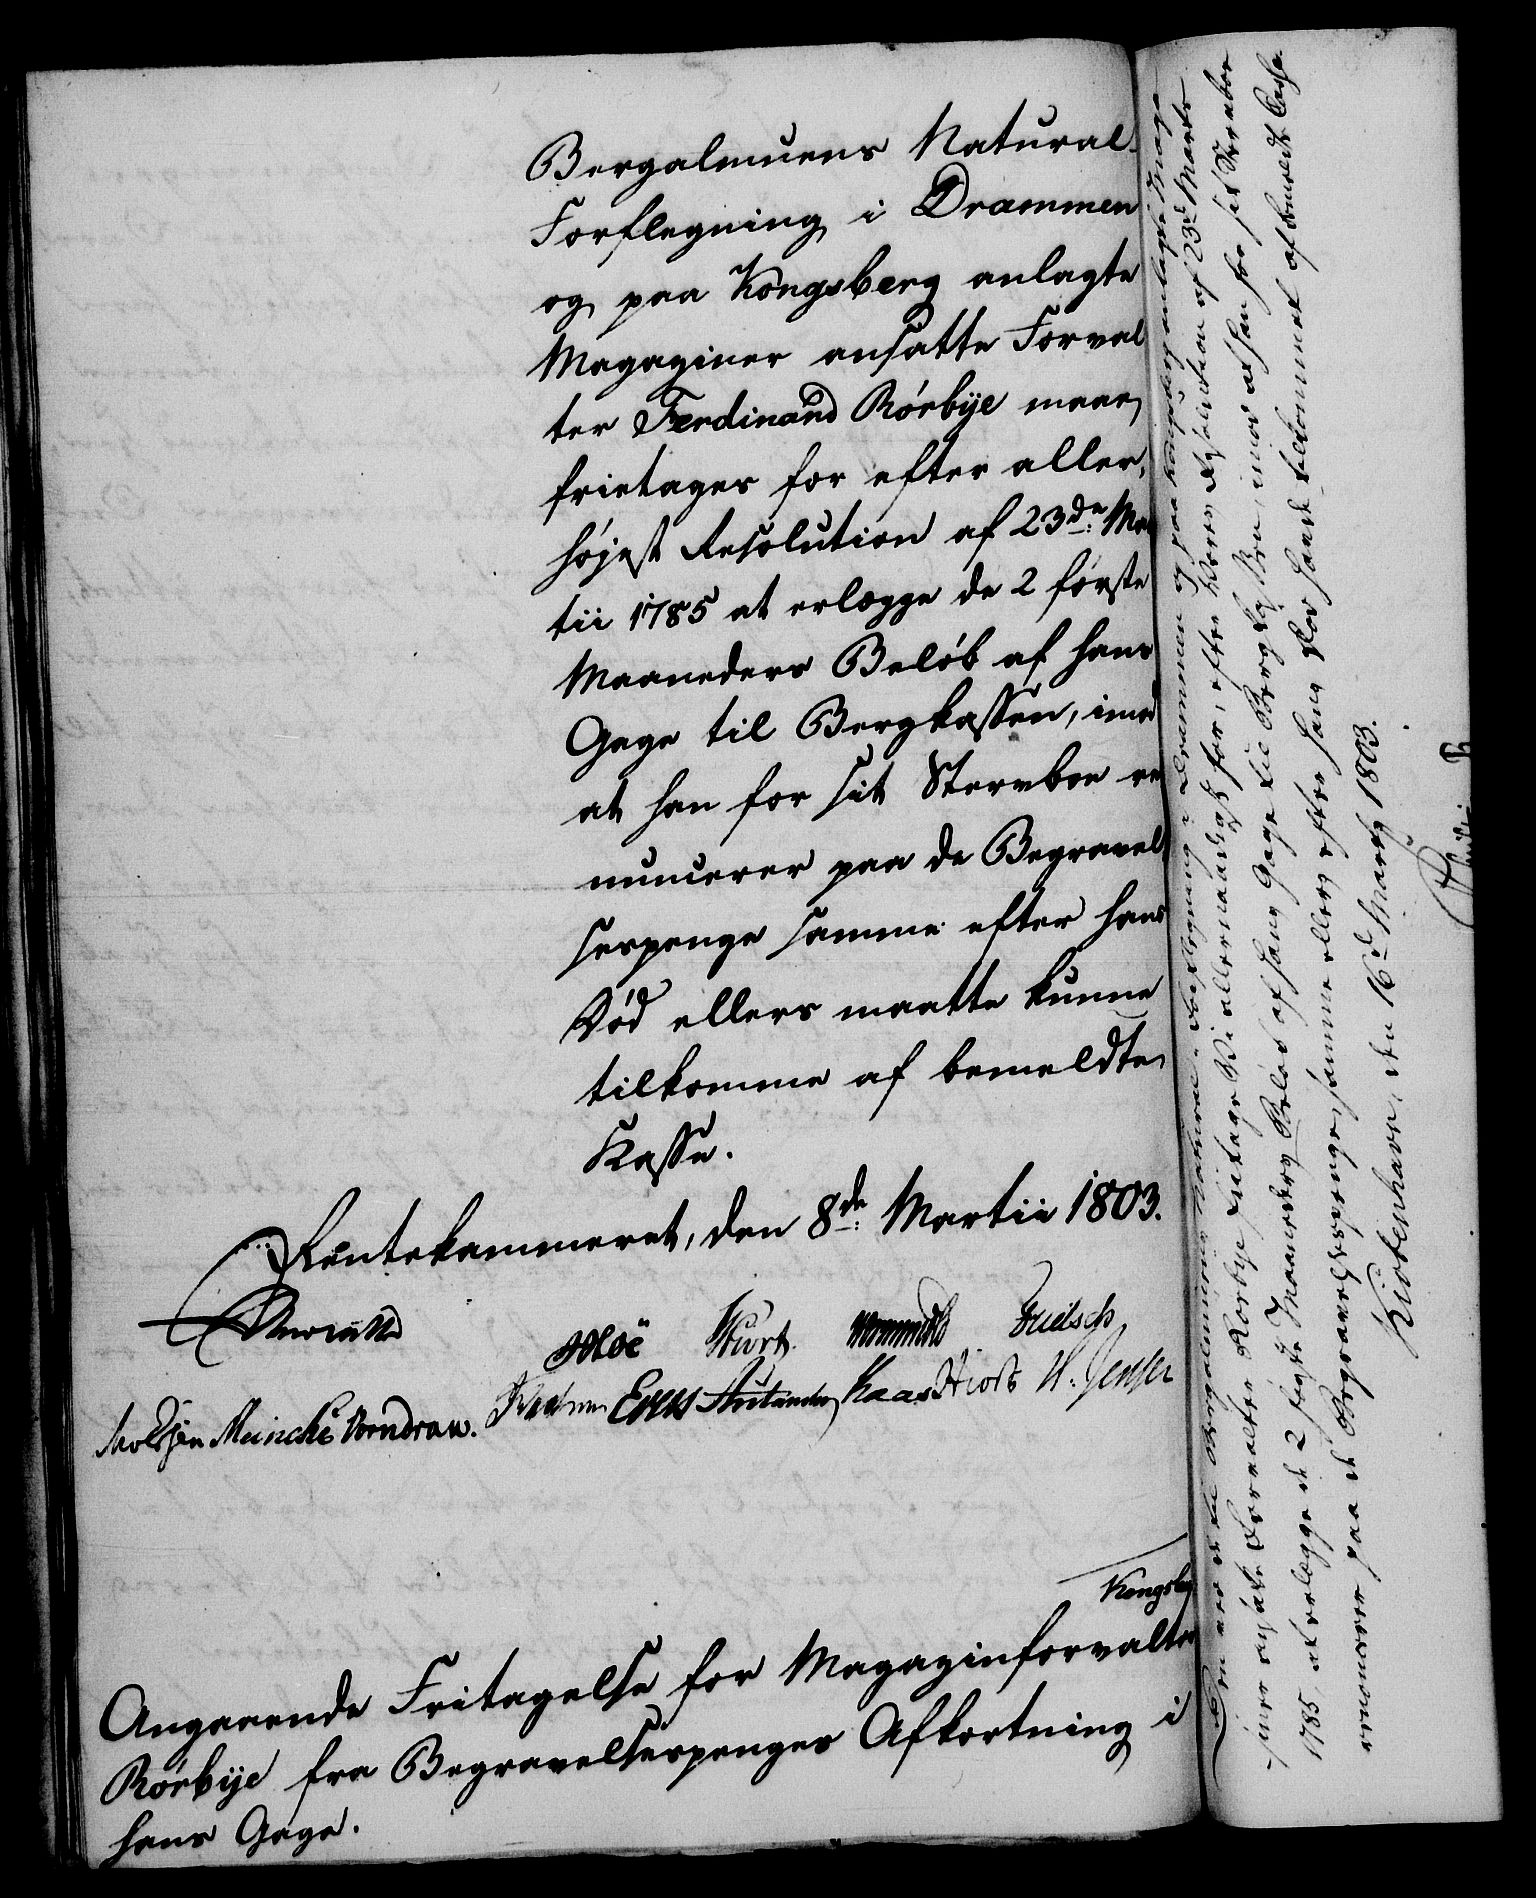 Bergalmuens Natural-
Forflegning i Drammen
og paa Kongsberg anlagte
Magaziner ansatte Forval
ter Ferdinand Rørbÿe maae
fritages for efter aller-
højest Resolution af 23de Mar
tii 1785 at erlægge de 2 første
Maaneders Beløb af hans
Gage til Bergkassen, imod
at han for sit Sterboe re
nuncerer paa de Begravel
sespenge samme efter hans
Død ellers maatte kunne
tilkomme af bemeldte
Kasse.
Rentekammeret, den 8de Martii 1803.
Moë Wurt. Fridsch
Meincke Vorndran.
Kaas Hiort H. Jensen
Kongsberg
Angaaende Fritagelse for Magazinforvalter
Rørbÿe fra Begravelsespenges Afkortning i
hans Gage.
Den ved de til Bergalmuens Natural-Forflegning i Drammen og paa Kongsberg anlagte Maga
ziner ansatte Forvalter Rørbye fritage Vi allernaadigst for, efter Vores Resolution af 23de Martii
1785, at erlægge de 2 første Maaneders Beløb af hans Gage til Bergkassen, imod at han for sit Sterboe
renuncerer paa de Begravelsespenge, samme ellers efter hans Død havde bekommet af bemeldte Casse.
Kiøbenhavn, den 16de Martz 1803.